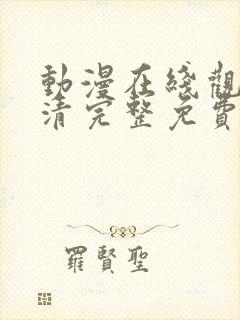 動漫在綫觀
清完整免費
羅賢聖